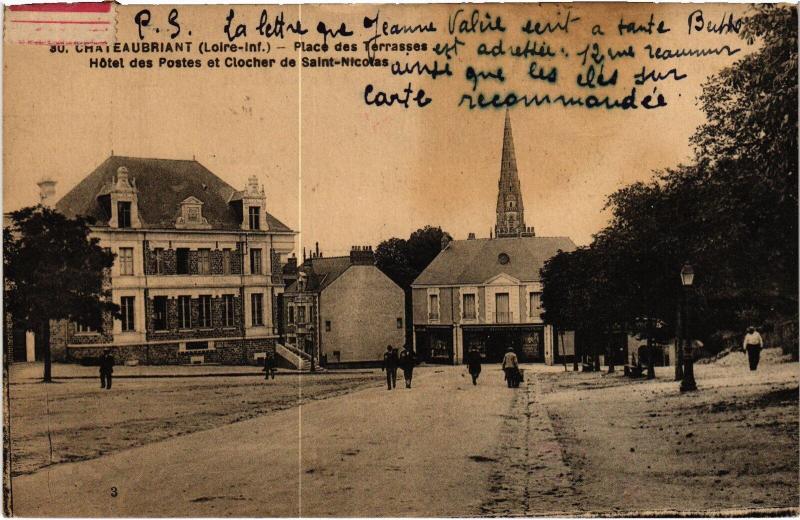 P.S. La lettre que Jeanne Valúe ecrit a tante Berthe
est adressée: 12 rue reaumur
ainsi que les clés sur
carte recommandée.
30. CHATEAUBRIANT (Loire-Inf.) - Place des Terrasses
Hôtel des Postes et Clocher de Saint-Nicolas
3